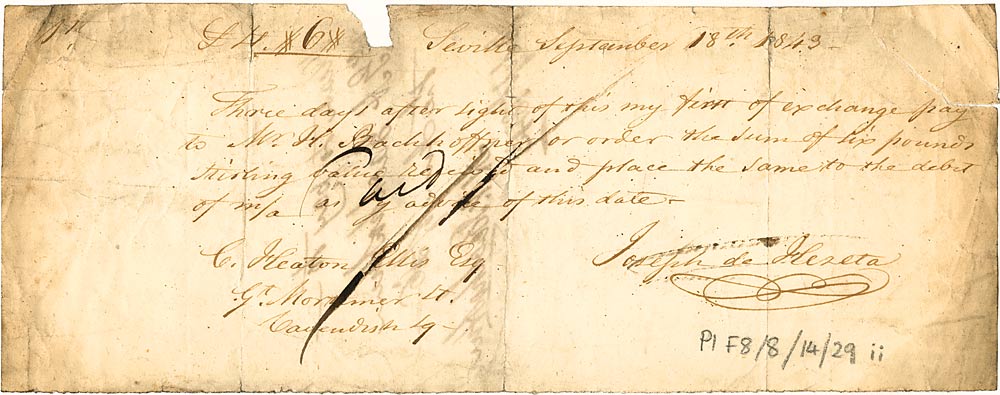 £ 4. #6# Seville September 18th 1843-
Three days after sight of this my first of exchange pay
to Mr. H. Bachhoffner or order the sum of six pounds
stirling value received and place the same to the debit
of m/a as by advice of this date-
Paid
C. Heaton Ellis Esq
Gt. Mortimer St.
Cavendish Sq-
Joseph de Hezeta
Pl F8/8/14/29 ii